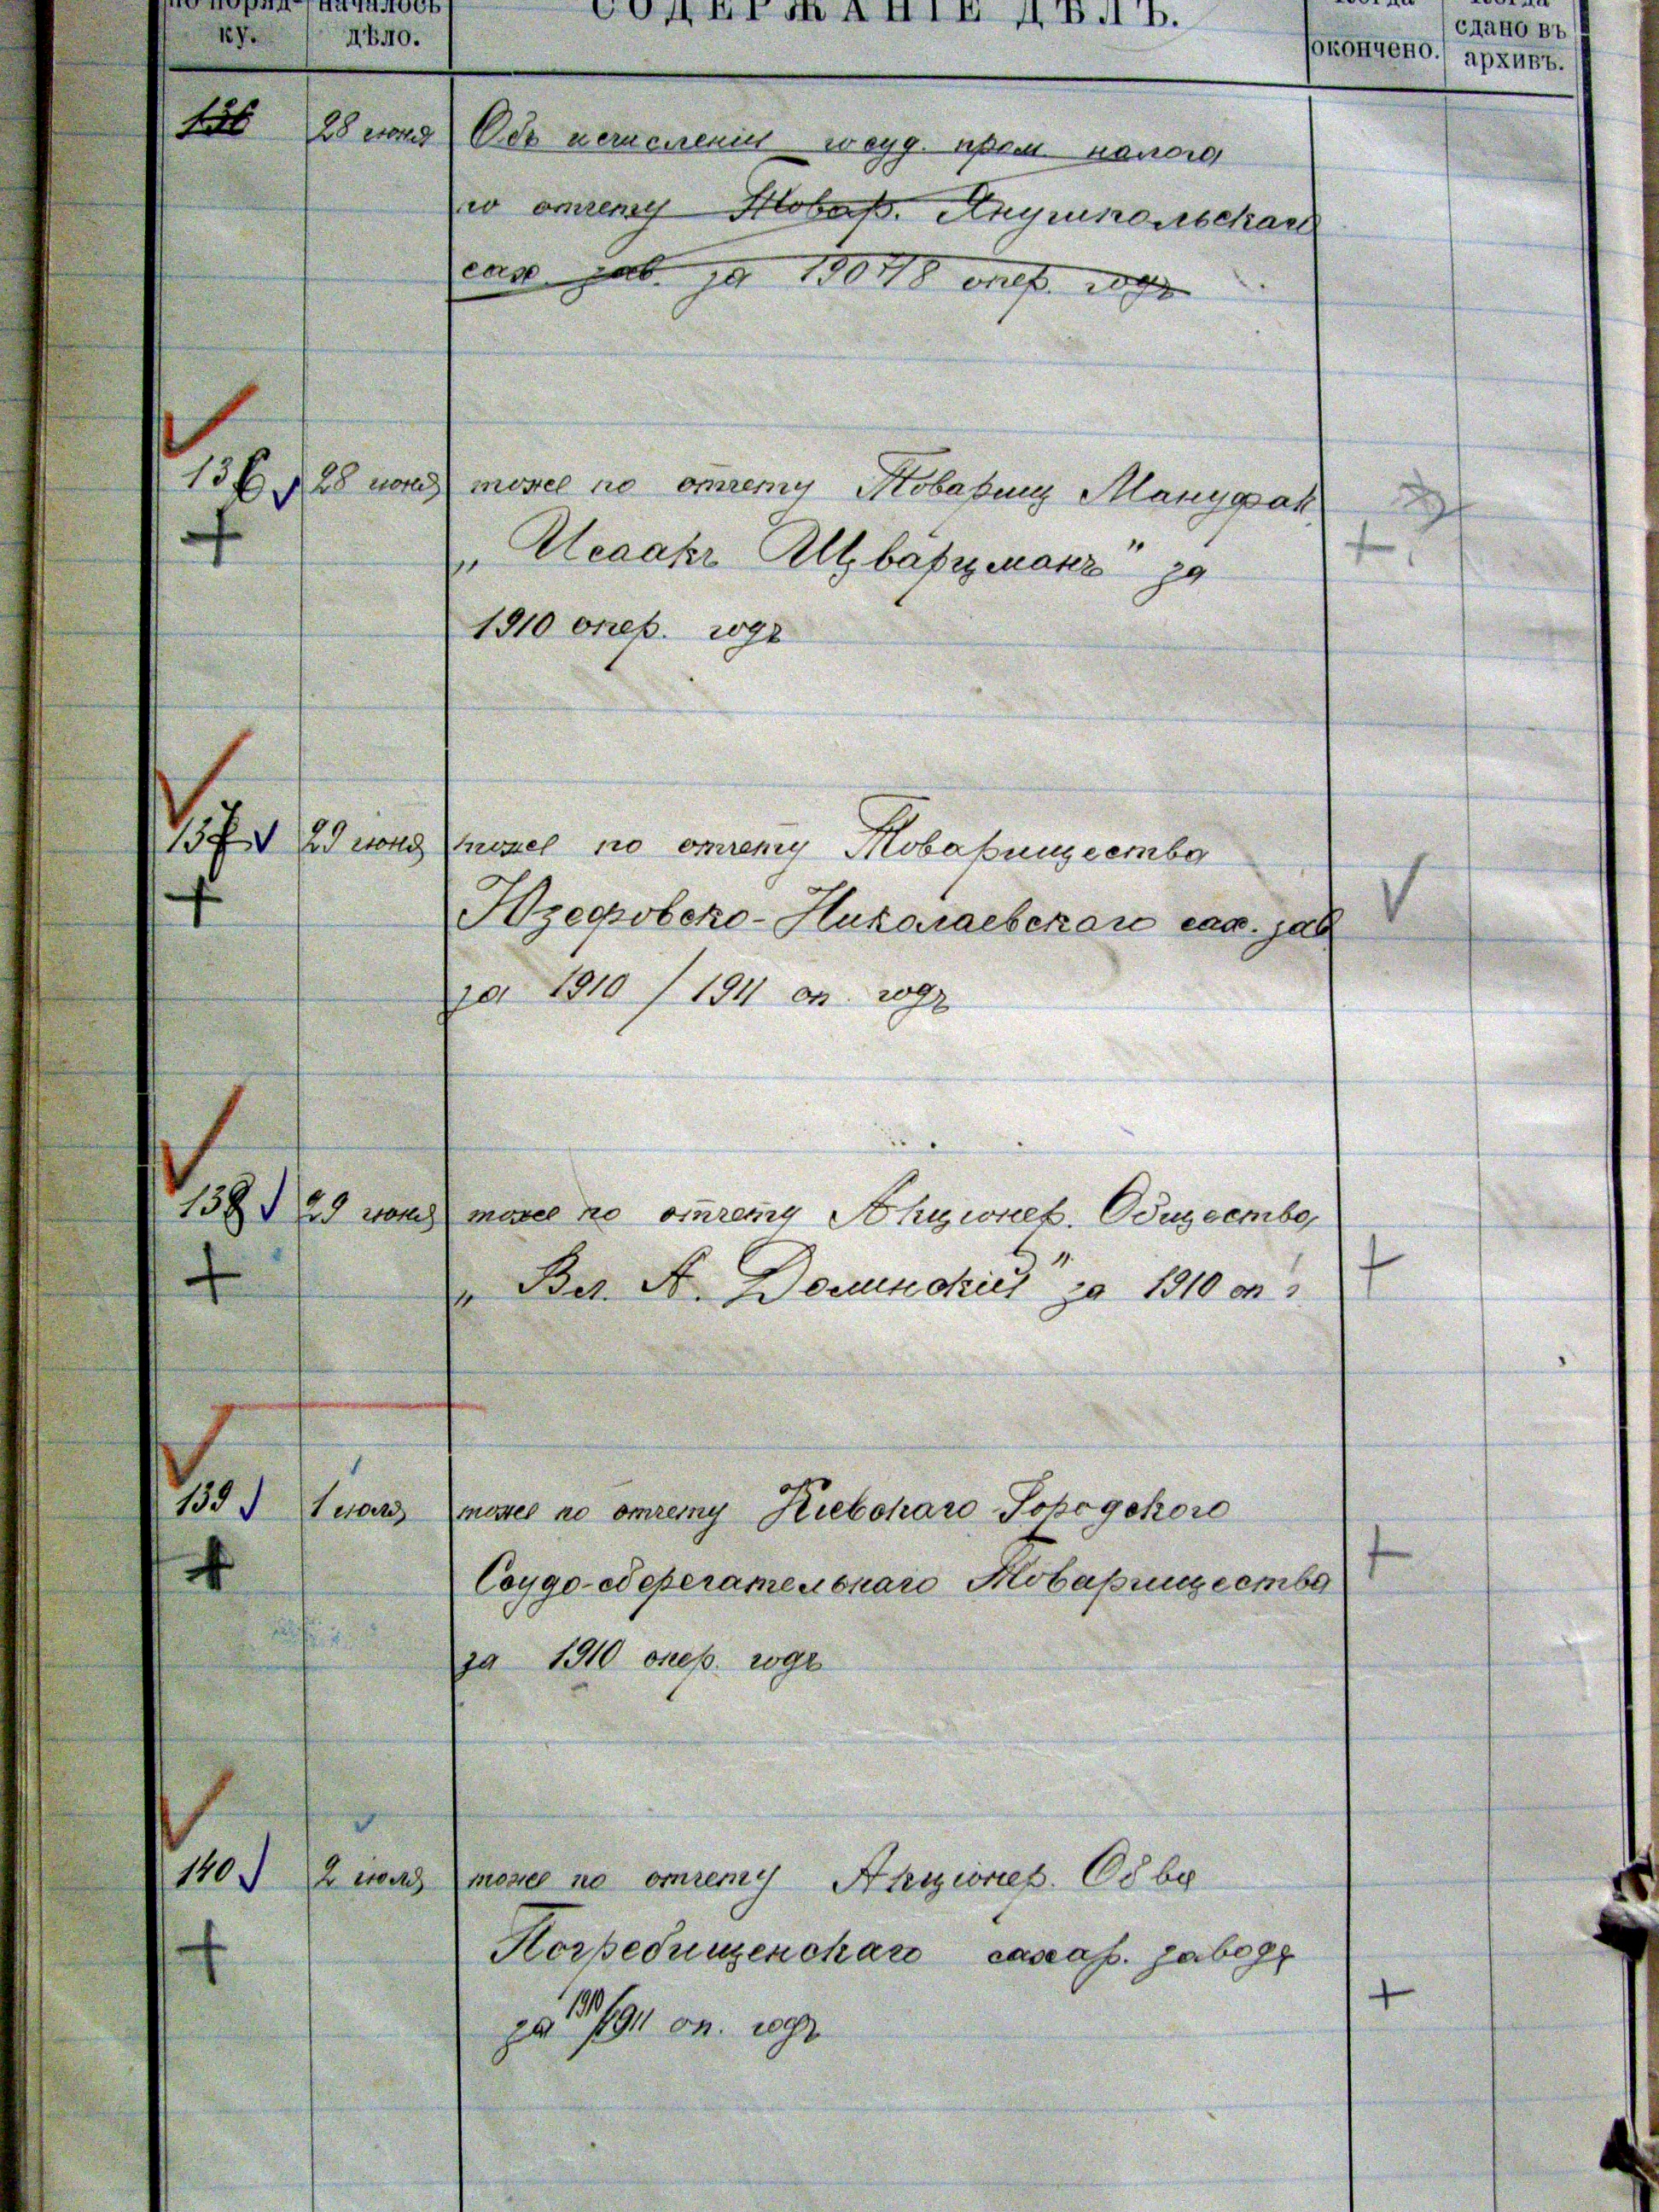 по поряд-
ку.
началось
дѣло.
СОДЕРЖАНІЕ ДѢЛЪ.
Когда
окончено.
Когда
сдано въ
архивъ.
136 28 июня Объ исчисленіи госуд. пром. налога
по отчету Товар. Янушпольскаго
сах. зав. за 1907/8 опер. годъ
136 28 июня тоже по отчету Товарищ Мануфак
„Исаакъ Шварцманъ" за
1910 опер. годъ
137 29 июня тоже по отчету Товарищества
Юзефовско-Николаевскаго сах. зав
за 1910/1911 оп. годъ
138 29 июня тоже по отчету Акціонер. Общества
„Вл. А. Долинскій" за 1910 оп г
139 1 июля тоже по отчету Кіевскаго Городского
Ссудо-сберегательнаго Товарищества
за 1910 опер. годъ
140 2 июля тоже по отчету Акціонер. Обва
Погребищенскаго сахар. завода
за 1910/1911 оп. годъ